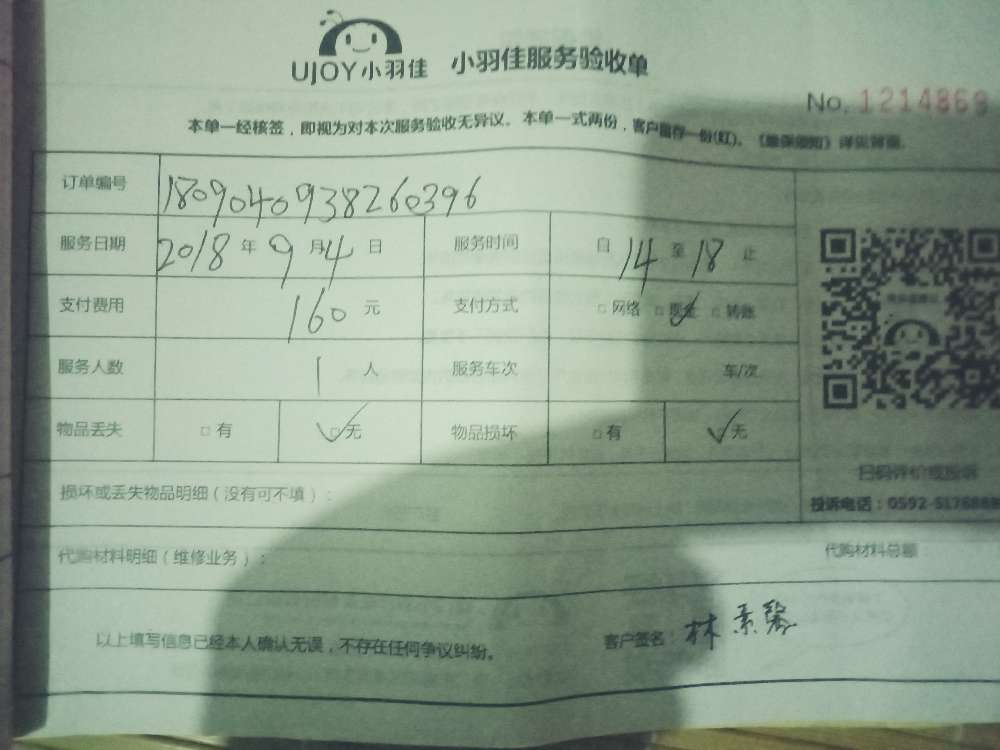 UJOY小羽佳 小羽佳服务验收单
No. 1214869
本单一经核签，即视为对本次服务验收无异议。本单一式两份，客户留存一份(红)。《售保须知》详见背面。
订单编号 1809040938260396
服务日期 2018年9月4日 服务时间 自14至18止
支付费用 160元 支付方式 □网络 ☑现金 □转账
服务人数 1人 服务车次 车/次
物品丢失 □有 ☑无 物品损坏 □有 ☑无
扫码评价或投诉
损坏或丢失物品明细（没有可不填）：
投诉电话：0592-5176
代购材料明细（维修业务）： 代购材料总额
以上填写信息已经本人确认无误，不存在任何争议纠纷。 客户签名：林景馨